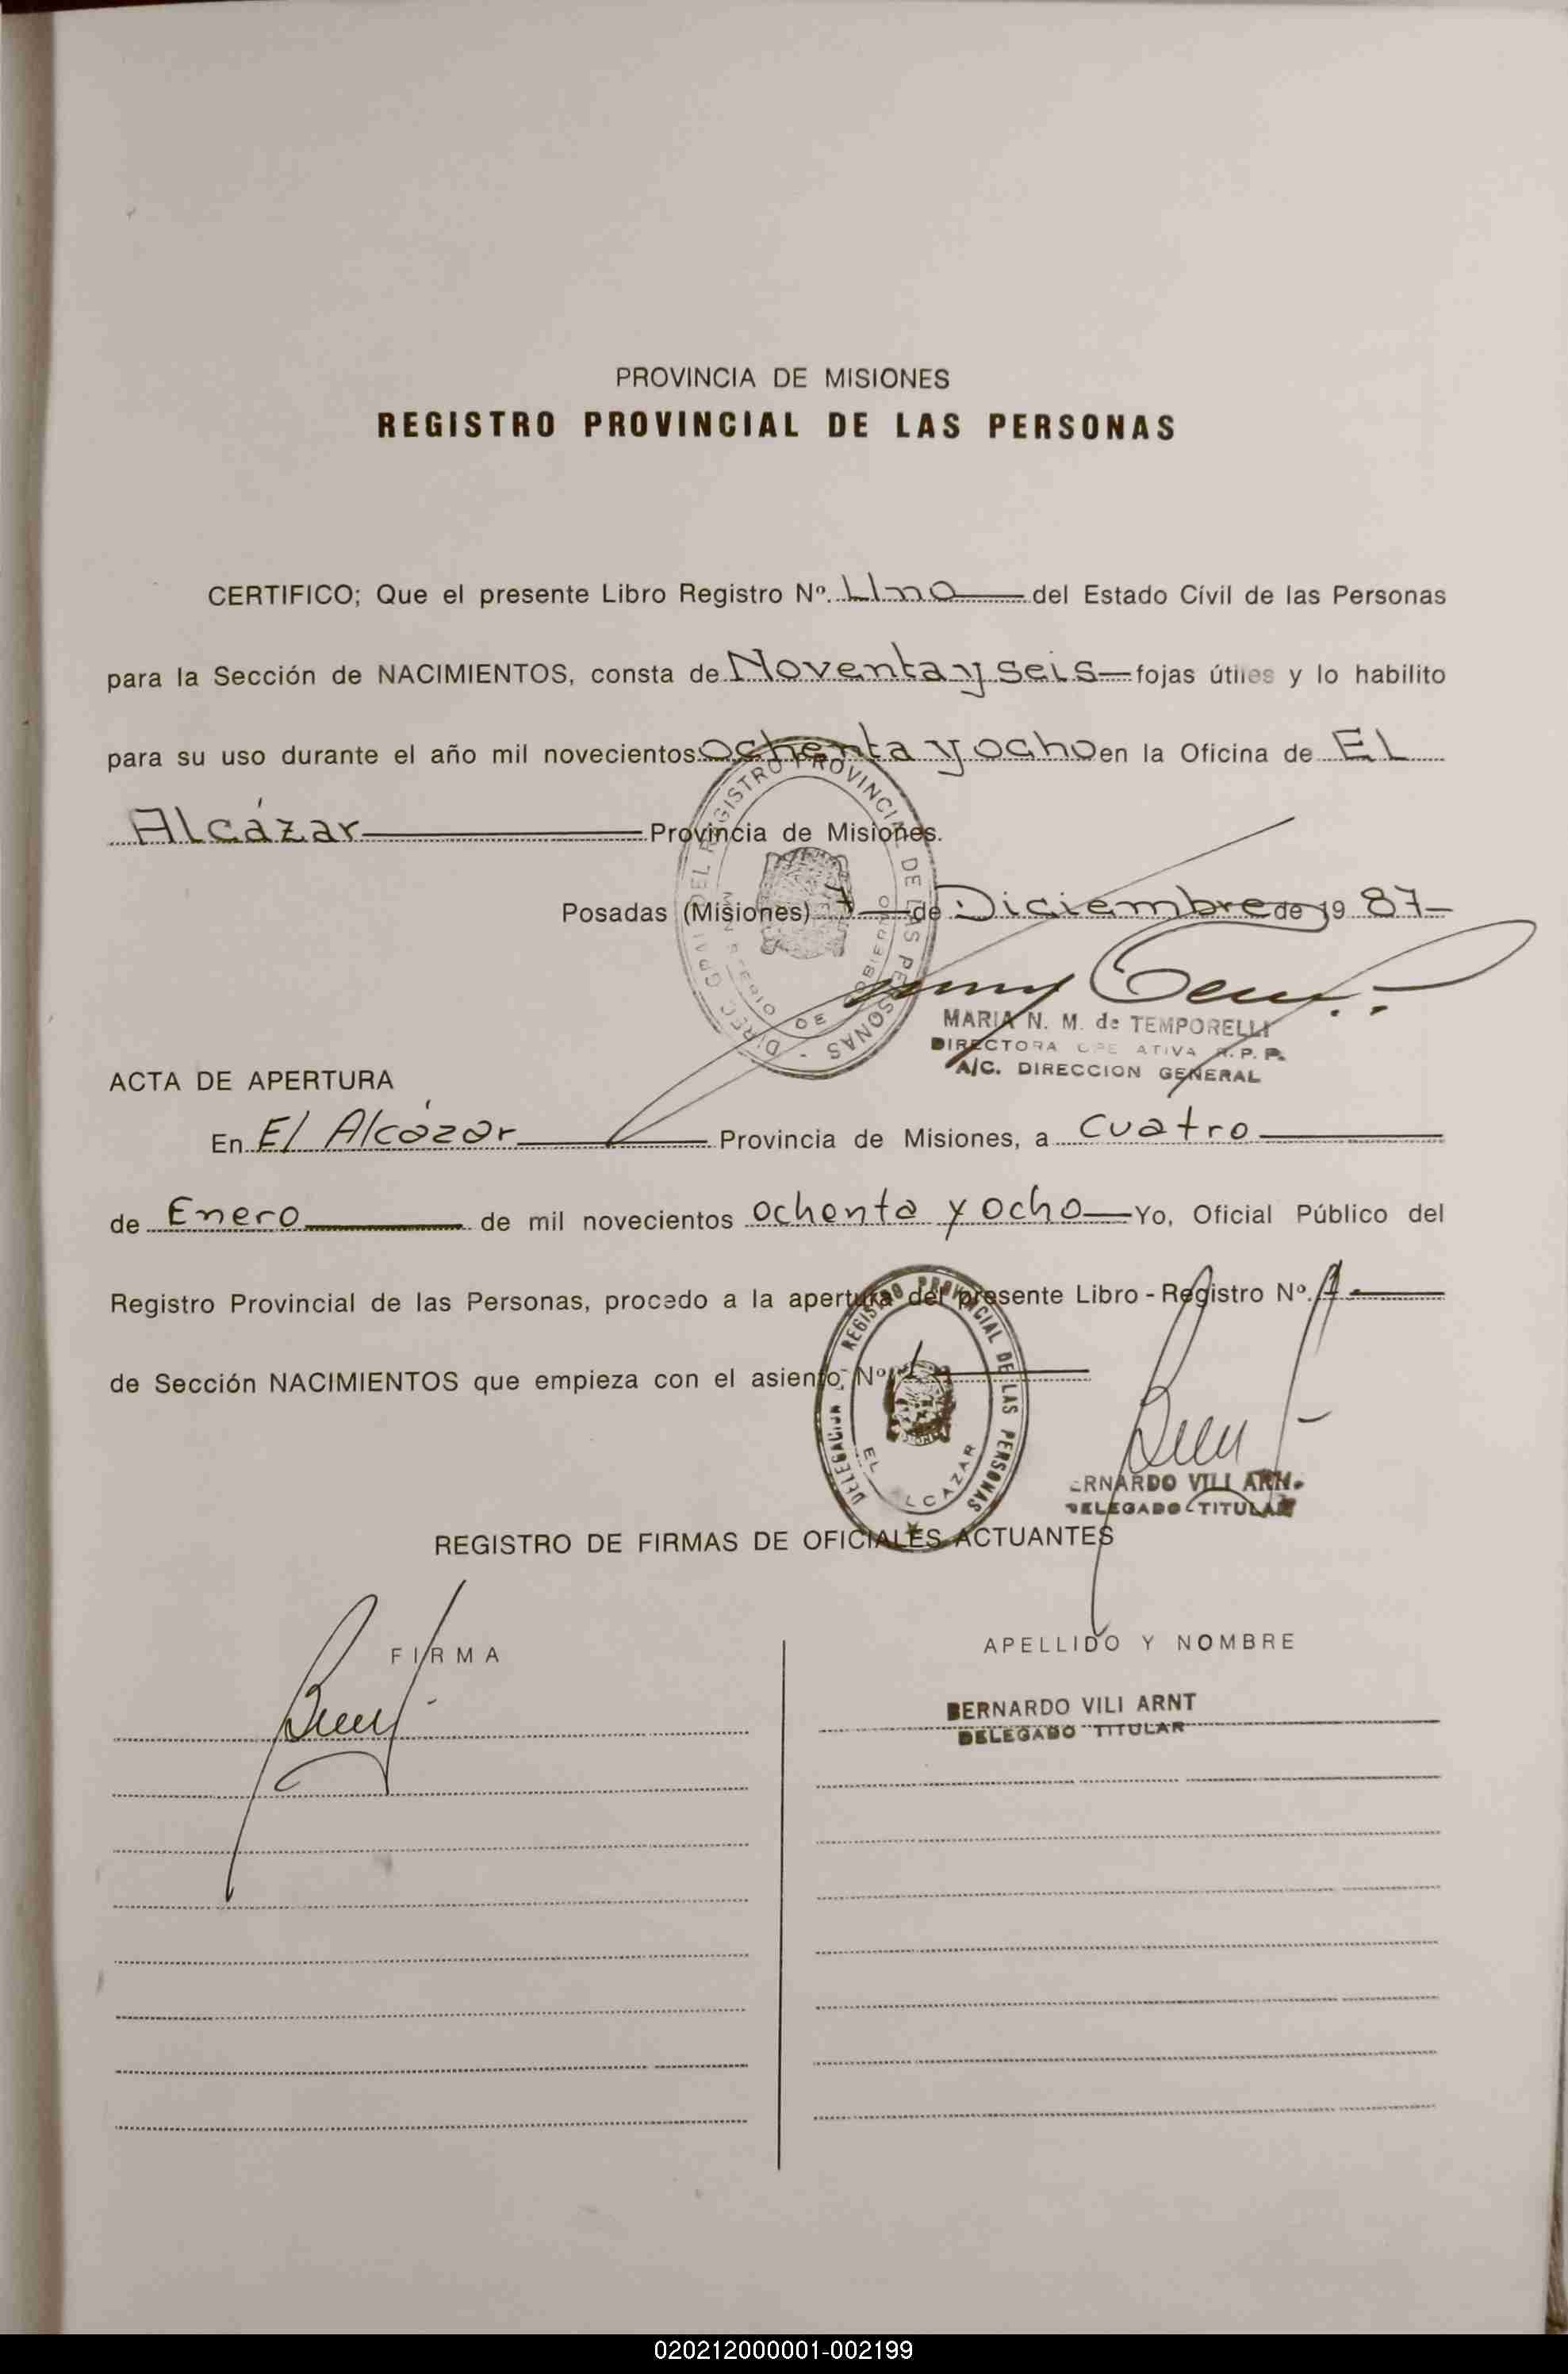 PROVINCIA DE MISIONES
REGISTRO PROVINCIAL DE LAS PERSONAS
CERTIFICO; Que el presente Libro Registro Nº. Uno del Estado Cívil de las Personas
para la Sección de NACIMIENTOS, consta de Noventa y seis fojas útiles y lo habilito
para su uso durante el año mil novecientos Ochenta y ocho en la Oficina de El
Alcázar Provincia de Misiones.
Posadas (Misiones) 7 de Diciembre de 19 87
DIREC. GRAL DEL REGISTRO PROVINCIAL DE LAS PERSONAS
MINISTERIO DE GOBIERNO
MARIA N. M. de TEMPORELLI
DIRECTORA OPE ATIVA R. P. P.
A/C. DIRECCION GENERAL
ACTA DE APERTURA
En El Alcázar Provincia de Misiones, a Cuatro
de Enero de mil novecientos ochenta y ocho Yo, Oficial Público del
Registro Provincial de las Personas, procedo a la apertura del presente Libro - Registro Nº. 1
de Sección NACIMIENTOS que empieza con el asiento Nº 1
REGISTRO PROVINCIAL DE LAS PERSONAS
DELEGACION
EL LCAZAR
ERNARDO VILI ARN
DELEGADO TITULAR
REGISTRO DE FIRMAS DE OFICIALES ACTUANTES
FIRMA
APELLIDO Y NOMBRE
BERNARDO VILI ARNT
DELEGADO TITULAR
020212000001-002199